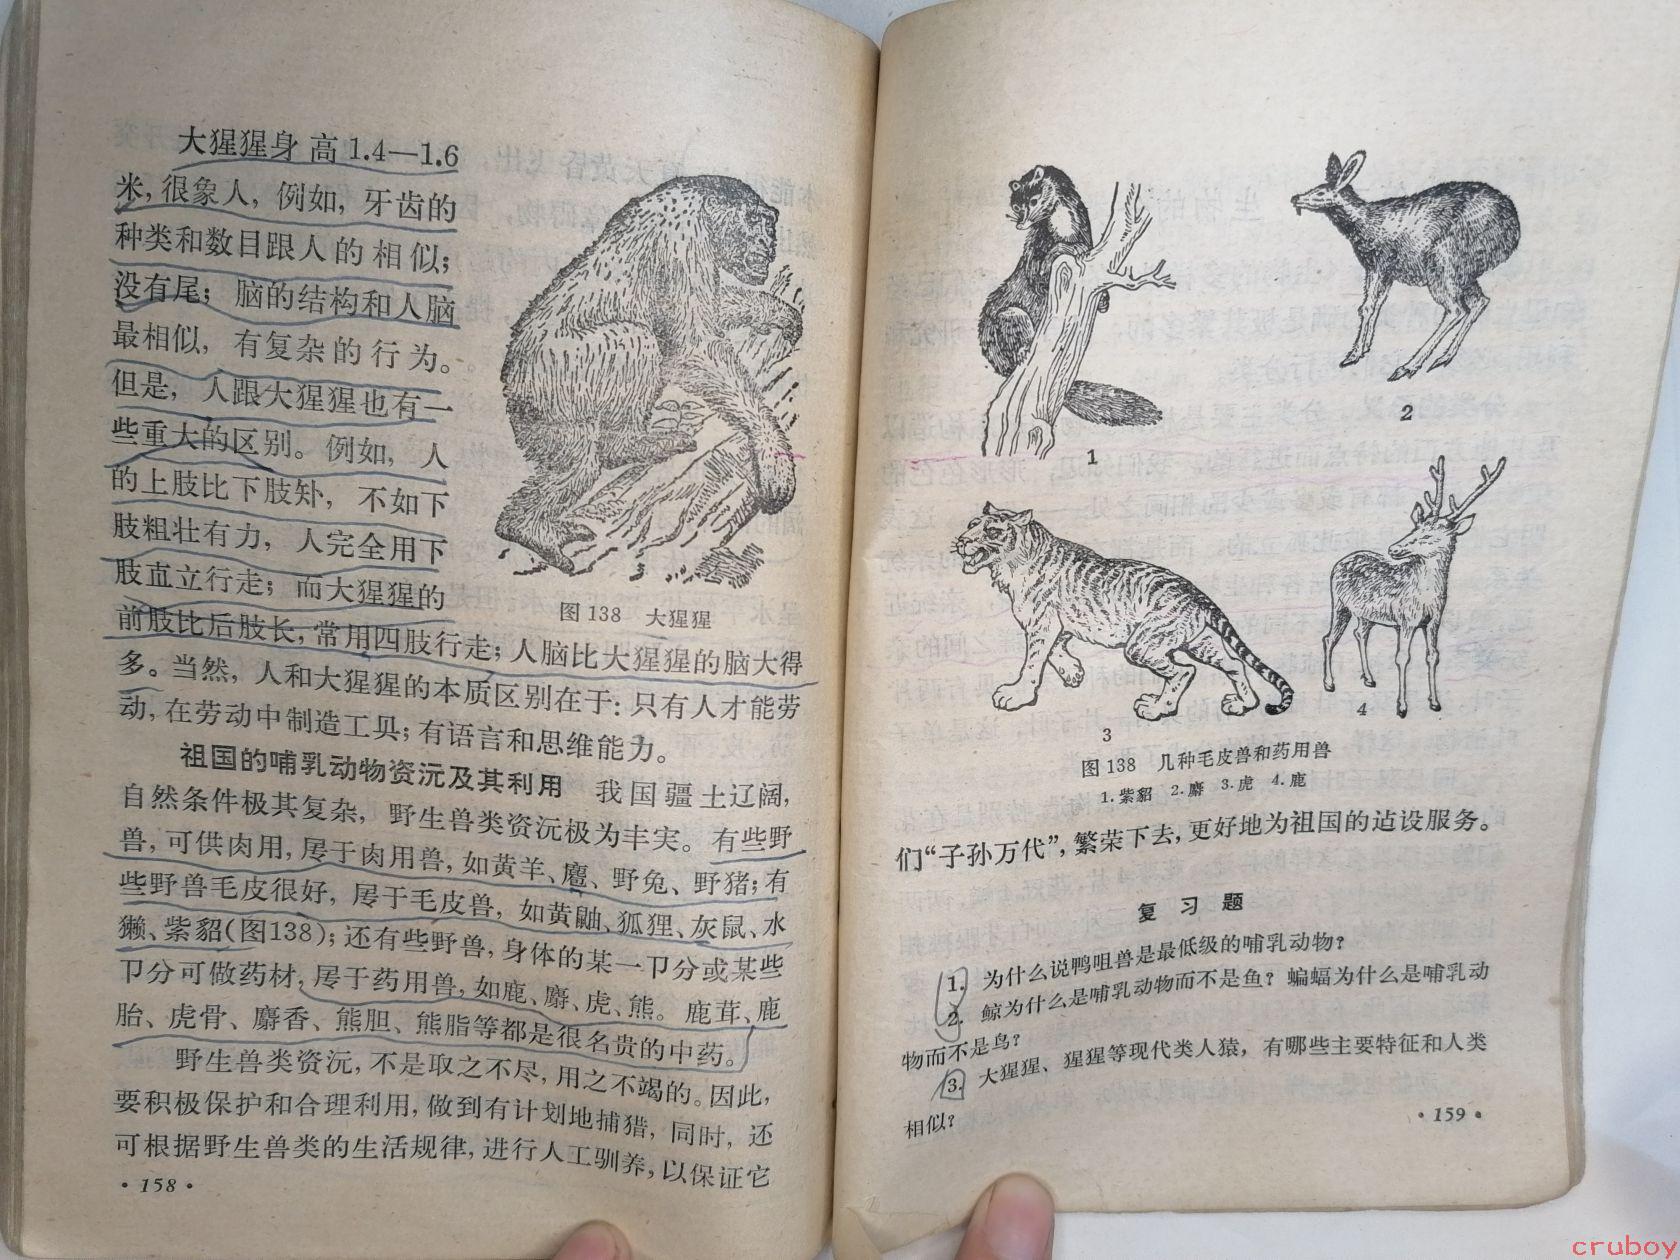 大猩猩身高1.4—1.6
米，很象人，例如，牙齿的
种类和数目跟人的相似；
没有尾；脑的结构和人脑
最相似，有复杂的行为。
但是，人跟大猩猩也有一
些重大的区别。例如，人
的上肢比下肢，不如下
肢粗壮有力，人完全用下
肢直立行走；而大猩猩的
前肢比后肢长，常用四肢行走；人脑比大猩猩的脑大得
多。当然，人和大猩猩的本质区别在于：只有人才能劳
动，在劳动中制造工具；有语言和思维能力。
图138 大猩猩
祖国的哺乳动物资沅及其利用 我国疆土辽阔，
自然条件极其复杂，野生兽类资沅极为丰实。有些野
兽，可供肉用，属于肉用兽，如黄羊、麅、野兔、野猪；有
些野兽毛皮很好，属于毛皮兽，如黄鼬、狐狸、灰鼠、水
獭、紫貂（图138）；还有些野兽，身体的某一卩分或某些
卩分可做药材，属于药用兽，如鹿、麝、虎、熊。鹿茸、鹿
胎、虎骨、麝香、熊胆、熊脂等都是很名贵的中药。
野生兽类资沅，不是取之不尽，用之不竭的。因此，
要积极保护和合理利用，做到有计划地捕猎，同时，还
可根据野生兽类的生活规律，进行人工驯养，以保证它
·158·
1
2
3
4
图138 几种毛皮兽和药用兽
1.紫貂 2.麝 3.虎 4.鹿
们“子孙万代”，繁荣下去，更好地为祖国的迠设服务。
复习题
1. 为什么说鸭咀兽是最低级的哺乳动物？
2. 鲸为什么是哺乳动物而不是鱼？蝙蝠为什么是哺乳动
物而不是鸟？
3. 大猩猩、猩猩等现代类人猿，有哪些主要特征和人类
相似？
·159·
cruboy